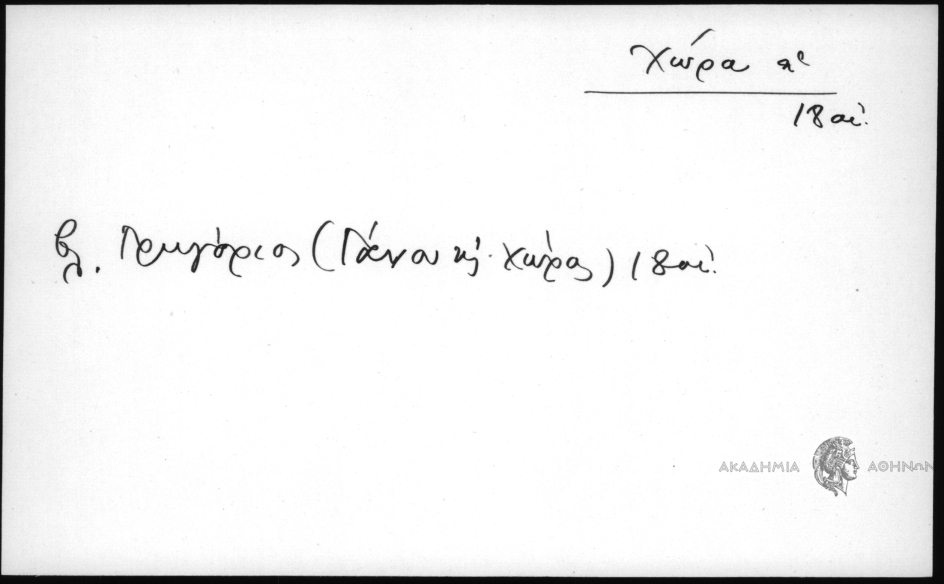 Χώρα
18 αἰ.
βλ. Γρηγόριος (Γάνου κ. Χώρας) 18 αἰ.
ΑΚΑΔΗΜΙΑ ΑΘΗΝΩΝ